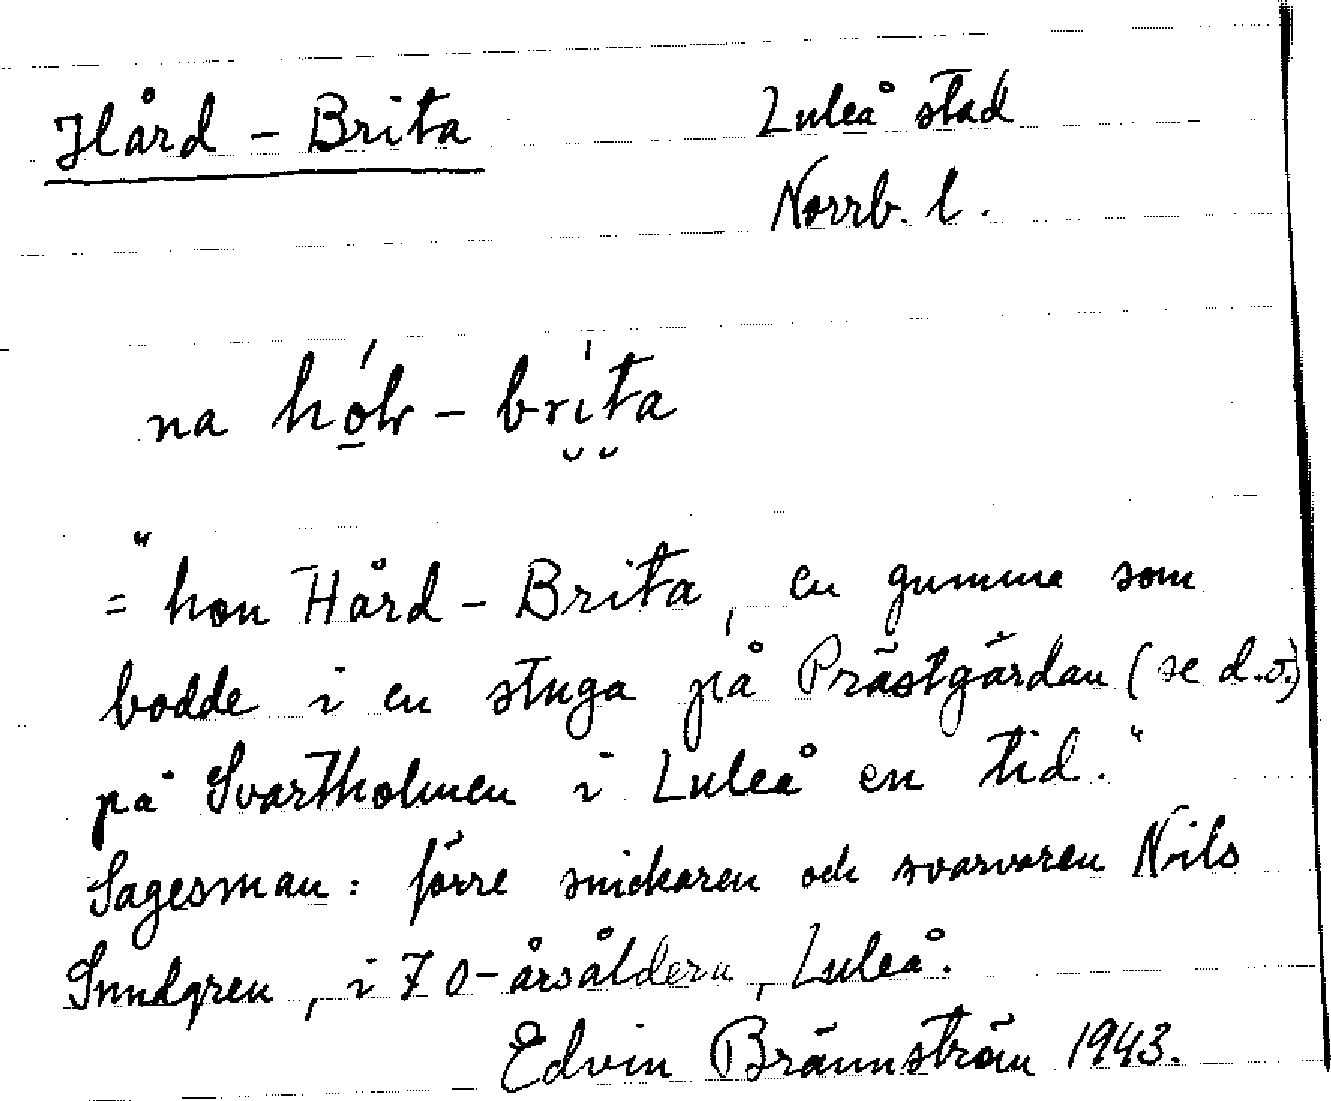 Hård - Brita
Luleå stad
Norrb. l.
na
= "hon Hård - Brita, en gumma som
bodde i en stuga på Prästgårdan (se d.o.)
på Svartholmen i Luleå en tid."
Sagesman: förre snickaren och svarvaren Nils
Sundgren, i 70-årsåldern, Luleå.
Edvin Brännström 1943.